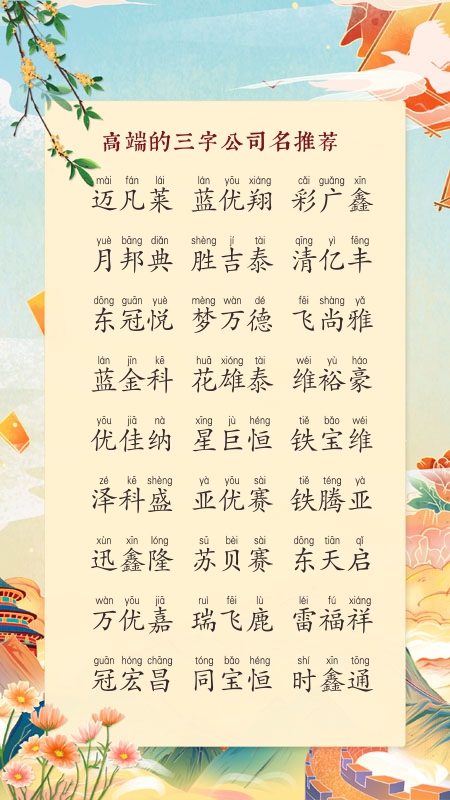 高端的三字公司名推荐
mài fán lái lán yōu xiáng cǎi guǎng xīn
迈凡莱 蓝优翔 彩广鑫
yuè bāng diǎn shèng jí tài qīng yì fēng
月邦典 胜吉泰 清亿丰
dōng guān yuè mèng wàn dé fēi shàng yǎ
东冠悦 梦万德 飞尚雅
lán jīn kē huā xióng tài wéi yù háo
蓝金科 花雄泰 维裕豪
yōu jiā nà xīng jù héng tiě bǎo wéi
优佳纳 星巨恒 铁宝维
zé kē shèng yà yōu sài tiě téng yà
泽科盛 亚优赛 铁腾亚
xùn xīn lóng sū bèi sài dōng tiān qǐ
迅鑫隆 苏贝赛 东天启
wàn yōu jiā ruì fēi lù léi fú xiáng
万优嘉 瑞飞鹿 雷福祥
guān hóng chāng tóng bǎo héng shí xīn tōng
冠宏昌 同宝恒 时鑫通